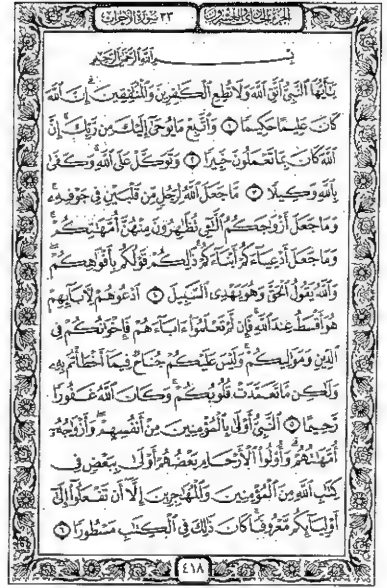 الجزء الحادي والعشرون
٣٣ سورة الأحزاب
بسم الله الرحمن الرحيم
يَٰٓأَيُّهَا ٱلنَّبِيُّ ٱتَّقِ ٱللَّهَ وَلَا تُطِعِ ٱلْكَٰفِرِينَ وَٱلْمُنَٰفِقِينَ ۗ إِنَّ ٱللَّهَ
كَانَ عَلِيمًا حَكِيمًا ١ وَٱتَّبِعْ مَا يُوحَىٰٓ إِلَيْكَ مِن رَّبِّكَ ۚ إِنَّ
ٱللَّهَ كَانَ بِمَا تَعْمَلُونَ خَبِيرًا ٢ وَتَوَكَّلْ عَلَى ٱللَّهِ ۚ وَكَفَىٰ
بِٱللَّهِ وَكِيلًا ٣ مَّا جَعَلَ ٱللَّهُ لِرَجُلٍ مِّن قَلْبَيْنِ فِي جَوْفِهِۦ ۚ
وَمَا جَعَلَ أَزْوَٰجَكُمُ ٱلَّٰٓـِٔي تُظَٰهِرُونَ مِنْهُنَّ أُمَّهَٰتِكُمْ ۚ
وَمَا جَعَلَ أَدْعِيَآءَكُمْ أَبْنَآءَكُمْ ۚ ذَٰلِكُمْ قَوْلُكُم بِأَفْوَٰهِكُمْ ۖ
وَٱللَّهُ يَقُولُ ٱلْحَقَّ وَهُوَ يَهْدِي ٱلسَّبِيلَ ٤ ٱدْعُوهُمْ لِأَبَآئِهِمْ
هُوَ أَقْسَطُ عِندَ ٱللَّهِ ۚ فَإِن لَّمْ تَعْلَمُوٓا۟ ءَابَآءَهُمْ فَإِخْوَٰنُكُمْ فِي
ٱلدِّينِ وَمَوَٰلِيكُمْ ۚ وَلَيْسَ عَلَيْكُمْ جُنَاحٌ فِيمَآ أَخْطَأْتُم بِهِۦ
وَلَٰكِن مَّا تَعَمَّدَتْ قُلُوبُكُمْ ۚ وَكَانَ ٱللَّهُ غَفُورًا
رَّحِيمًا ٥ ٱلنَّبِيُّ أَوْلَىٰ بِٱلْمُؤْمِنِينَ مِنْ أَنفُسِهِمْ ۖ وَأَزْوَٰجُهُۥٓ
أُمَّهَٰتُهُمْ ۗ وَأُو۟لُوا۟ ٱلْأَرْحَامِ بَعْضُهُمْ أَوْلَىٰ بِبَعْضٍ فِي
كِتَٰبِ ٱللَّهِ مِنَ ٱلْمُؤْمِنِينَ وَٱلْمُهَٰجِرِينَ إِلَّآ أَن تَفْعَلُوٓا۟ إِلَىٰٓ
أَوْلِيَآئِكُم مَّعْرُوفًا ۚ كَانَ ذَٰلِكَ فِي ٱلْكِتَٰبِ مَسْطُورًا ٦
٤١٨